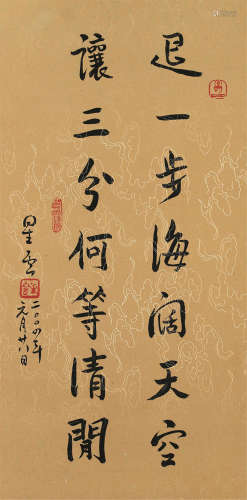 退一步海阔天空
讓三分何等清閒
星雲
二〇〇四年
元月廿八日